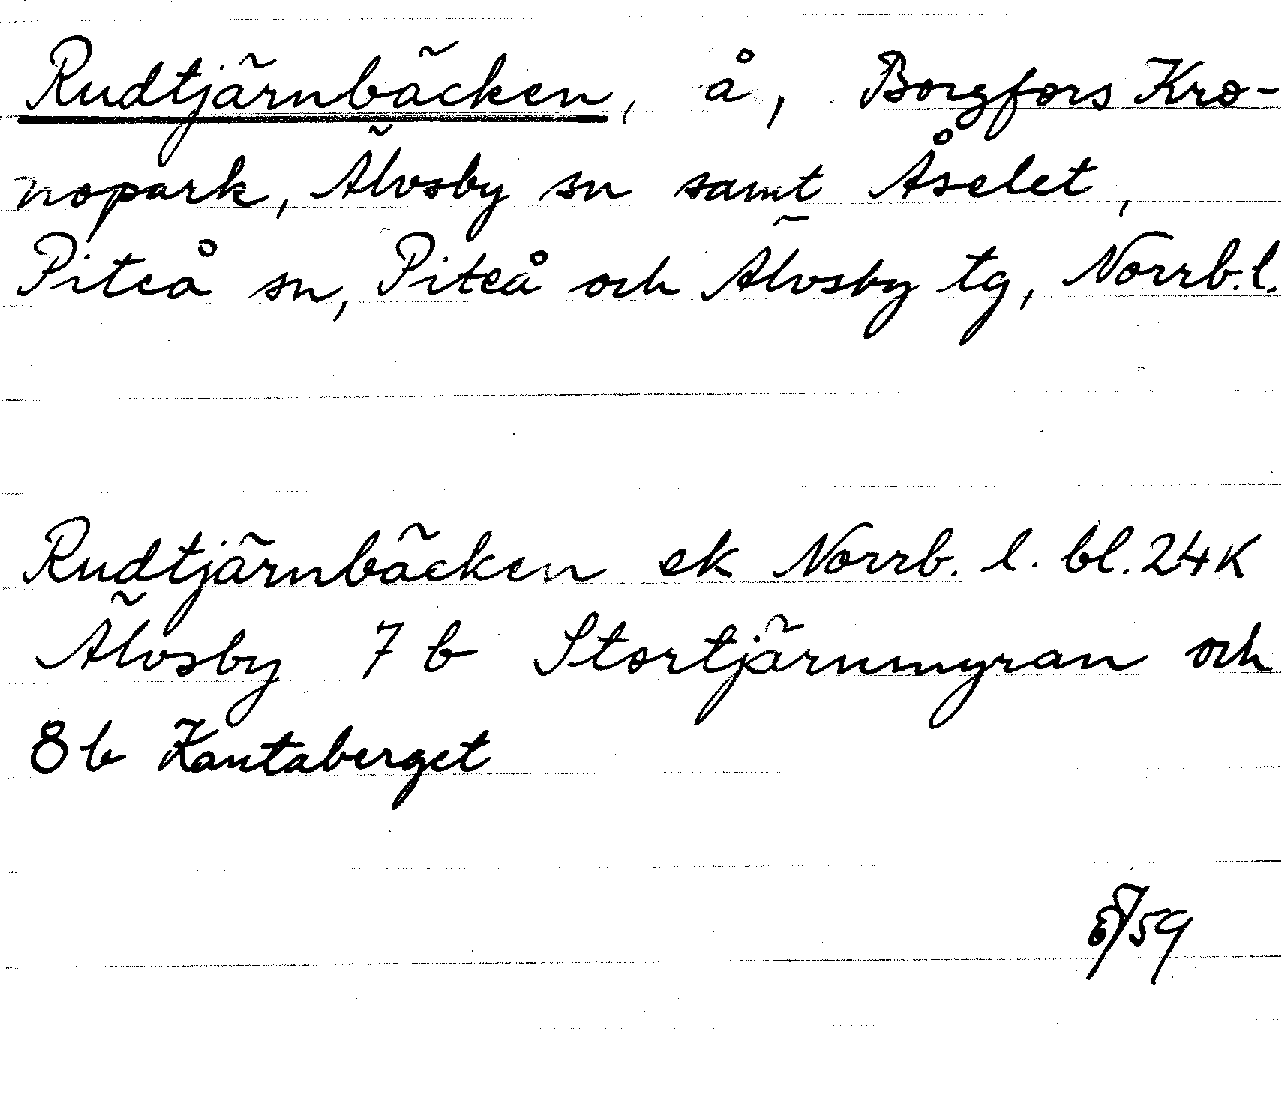 Rudtjärnbäcken, å, Borgfors Kro-
nopark, Älvsby sn samt Åselet,
Piteå sn, Piteå och Älvsby tg, Norrb.l.
Rudtjärnbäcken ek Norrb. l. bl. 24K
Älvsby 7 b Stortjärnmyran och
8 b Kantaberget
8/59